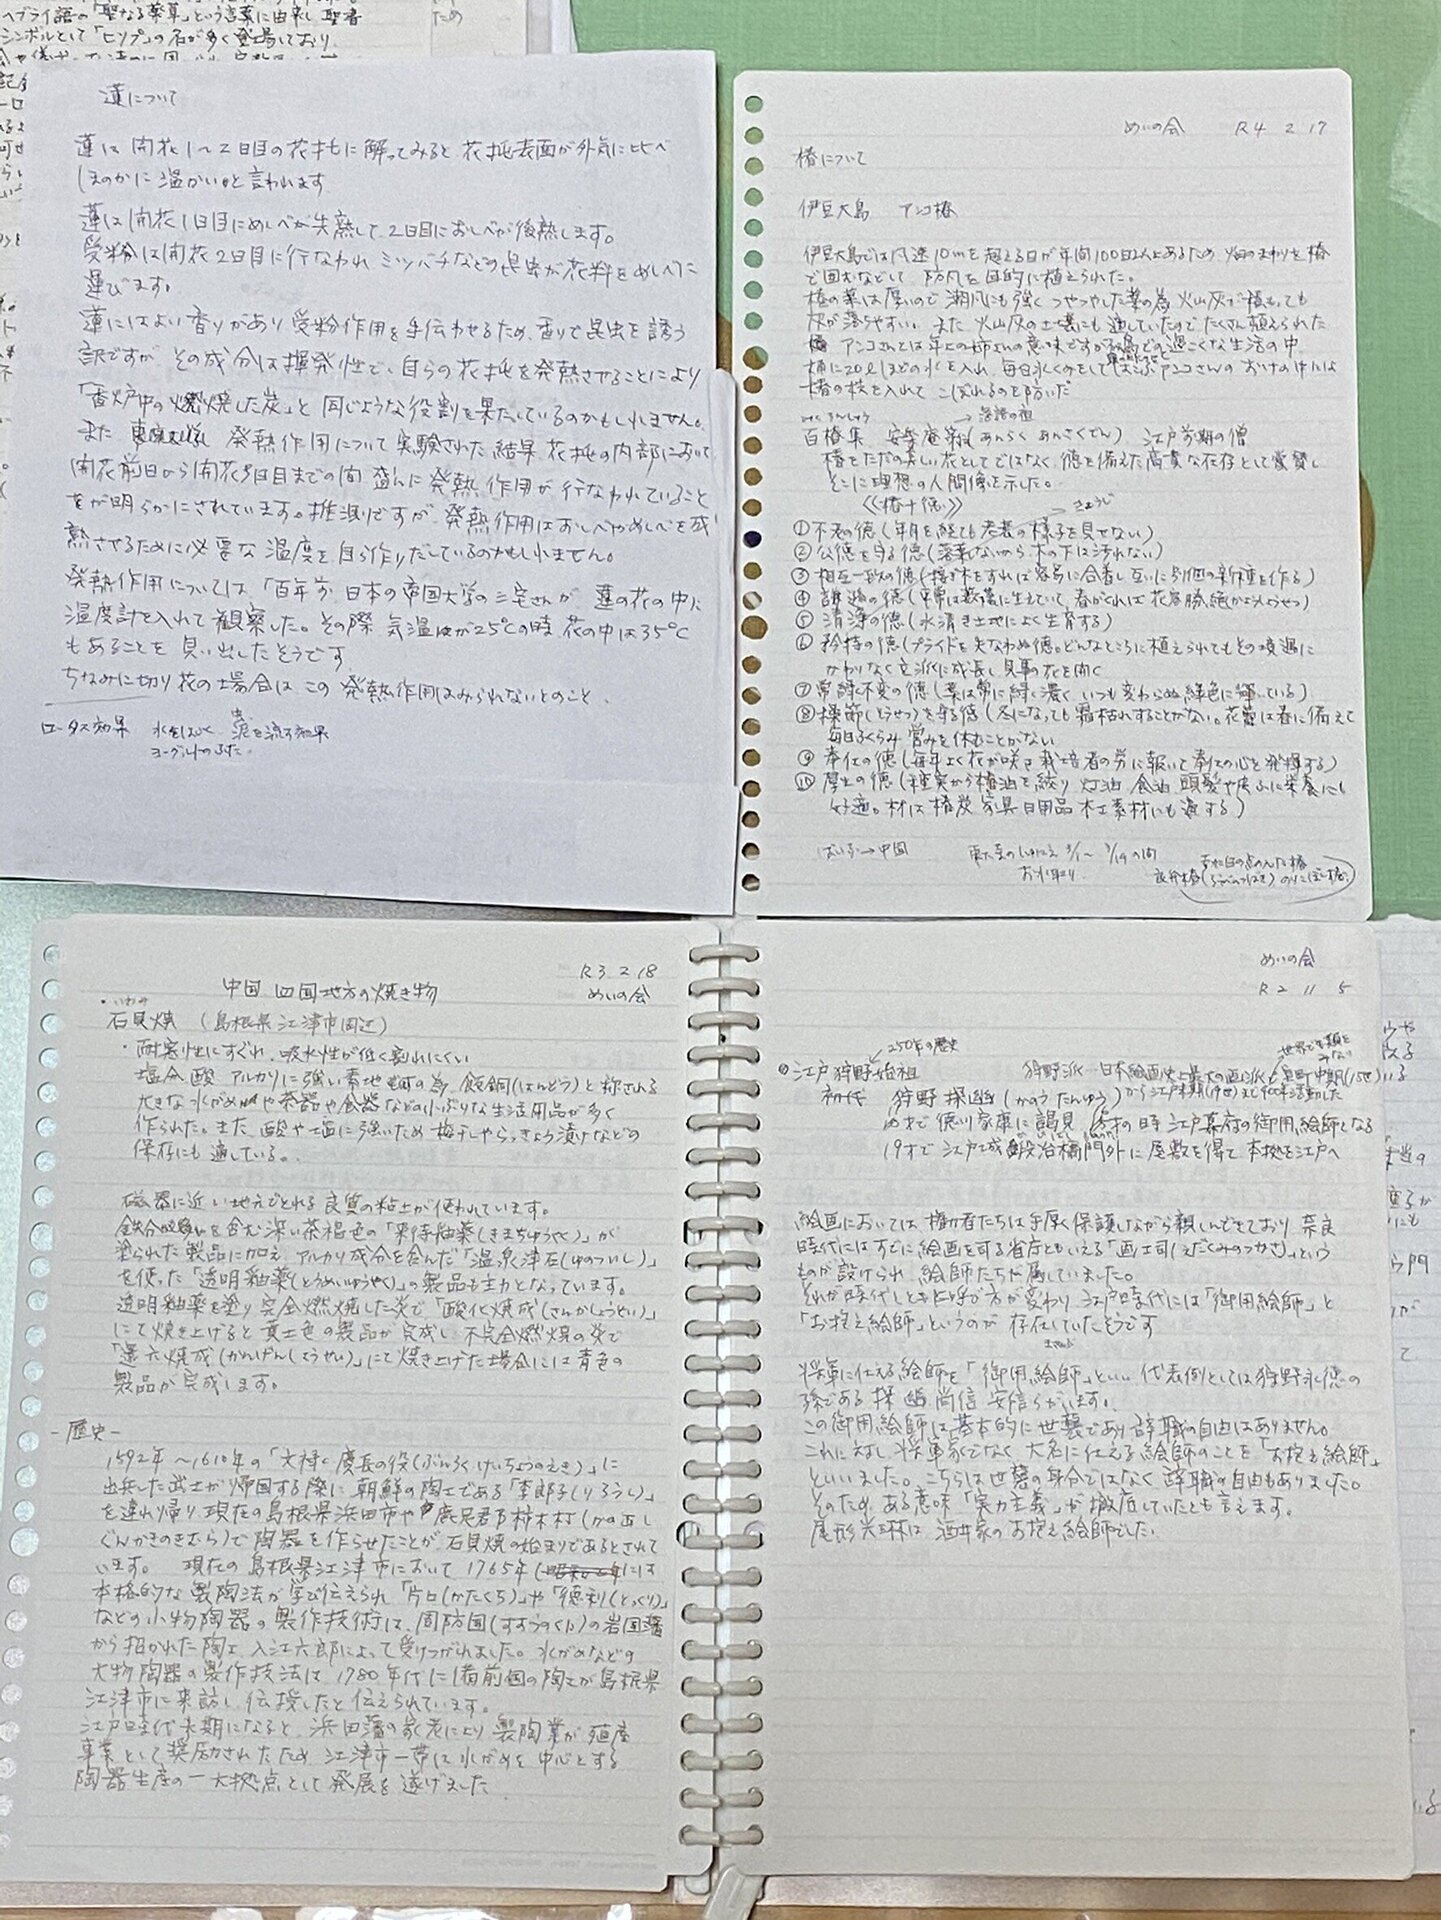 ヘブライ語の「聖なる薬草」という言葉に由来し 聖書
シンボルとして「ヒソプ」の名が多く登場しており
ため
蓮について
蓮は 開花1〜2日目の花托に触ってみると 花托表面が外気に比べ
ほのかに温かいと言われます
蓮は開花1日目にめしべが先熟して 2日目におしべが後熟します。
受粉は開花2日目に行なわれ ミツバチなどの昆虫が花粉をめしべに
運びます。
蓮にはよい香りがあり 受粉作用を手伝わせるため 香りで昆虫を誘う
訳ですが その成分は揮発性で、自らの花托を発熱させることにより
「香炉中の燃焼した炭」と同じような役割を果たしているのかもしれません。
また 発熱作用について実験された結果 花托の内部において
開花前日から開花3日目までの間 盛んに発熱作用が行なわれていること
をが明らかにされています。推測ですが 発熱作用はおしべやめしべを成
熟させるために必要な温度を自ら作りだしているのかもしれません。
発熱作用については、「百年前 日本の帝国大学の三宅さんが 蓮の花の中に
温度計を入れて観察した。その際 気温が25℃の時 花の中は35℃
もあることを見い出したそうです
ちなみに切り花の場合は この発熱作用はみられないとのこと、
ロータス効果 水をはじく 虫 泥を流す効果
ヨーグルトのふた。
めいの会 R4 2 17
椿について
伊豆大島 アンコ椿
伊豆大島では風速10mを超える日が年間100日以上あるため 畑のまわりを椿
で囲むなどして 防風を目的に植えられた。
椿の葉は厚いので 潮風にも強く つやつやした葉の為 火山灰が積もっても
灰が落ちやすい。また 火山灰の土壌にも適していたので たくさん植えられた
アンコさんとは年上の姉さんの意味ですが 離島での過こくな生活の中
桶に20ℓほどの水を入れ 毎日水くみをして はこぶアンコさんの おけの中には
椿の枝を入れて こぼれるのを防いだ
→ 落語の祖
百椿集 安楽庵策伝(あんらく あんさくでん) 江戸前期の僧
椿をただの美しい花としてではなく 徳を備えた高貴な存在として愛賛し
そこに理想の人間像を示した。
《椿十徳》 きょうじ
① 不老の徳(年月を経ても老衰の様子を見せない)
② 公徳を守る徳(落葉しないから 木の下は汚れない)
③ 相互一致の徳(接ぎ木をすれば容易に合着し 互いに別個の新種を作る)
④ 謙遜の徳(平常は叢藪に生えていて 春がくれば花容勝絶
⑤ 清浄の徳(水清き土地によく生育する)
⑥ 矜持の徳(プライドを失なわぬ徳。どんなところに植えられてもその境遇に
かかわりなく 立派に成長し見事な花を開く
⑦ 常緑不変の徳(葉は常に緑濃く いつも変わらぬ緑色に輝いている)
⑧ 操節(そうせつ)を守る徳(冬になっても霜枯れすることがない。花蕾は春に備えて
毎日ふくらみ 営みを休むことがない
⑨ 奉仕の徳(毎年よく花が咲き 栽培者の労に報いて奉仕の心を発揮する)
⑩ 厚生の徳(種実から椿油を絞り 灯油 食油 頭髪や皮ふに栄養にも
好適。材は椿炭 家具日用品 木工素材にも適する)
ばいふ→中国 東大寺のしゅにえ 3/1〜3/14の間
お水取り
赤に白の点のんだ椿
良弁椿(ろうべんつばき) のりこぼし椿
R3 2 18
中国 四国地方の焼き物 めいの会
いわみ
・石見焼 (島根県江津市周辺)
・耐寒性にすぐれ、吸水性が低く割れにくい
塩分 酸 アルカリに強い素地の為 飯銅(はんどう)と称される
大きな水がめや茶器や食器などの小ぶりな生活用品が多く
作られた。また 酸や塩に強いため 梅干しやらっきょう漬けなどの
保存にも適している。
磁器に近い地元でとれる良質の粘土が使われています。
鉄分を含む深い茶褐色の「来待釉薬(きまちゆうやく)」が
塗られた製品に加え アルカリ成分を含んだ「温泉津石(ゆのついし)」
を使った「透明釉薬(とうめいゆうやく)」の製品も主力となっています。
透明釉薬を塗り 完全燃焼した炎で「酸化焼成(さんかしょうせい)」
にて焼き上げると 黄土色の製品が完成し 不完全燃焼の炎で
「還元焼成(かんげんしょうせい)」にて焼き上げた場合には青色の
製品が完成します。
-歴史-
1592年〜1610年の「文禄・慶長の役(ぶんろくけいちょうのえき)」に
出兵した武士が帰国する際に 朝鮮の陶工である「李郎子(りろうし)」
を連れ帰り 現在の島根県浜田市や鹿足郡柿木村(かのあし
ぐんかきのきむら)で陶器を作らせたことが 石見焼の始まりであるとされて
います。 現在の島根県江津市において 1765年には
本格的な製陶法が 伝えられ 「片口(かたくち)」や「徳利(とっくり)」
などの小物陶器の製作技術は、周防国(すおうのくに)の岩国藩
から招かれた陶工 入江六郎によって受けつがれました。水がめなどの
大物陶器の製作技法は 1780年代に備前国の陶工が島根県
江津市に来訪し 伝授したと伝えられています。
江戸時代末期になると 浜田藩の家老により 製陶業が 殖産
事業として奨励されたため 江津市一帯は 水がめを中心とする
陶器生産の一大拠点として 発展を遂げました
めいの会
R2 11 5
250年の歴史
世界で類を
みない
●江戸狩野始祖 狩野派 日本絵画史上最大の画派 室町中期(15世)
から江戸末期(19世)まで400年活動した
初代 狩野探幽(かのうたんゆう)
10才で徳川家康に謁見 15才の時 江戸幕府の御用絵師となる
19才で江戸城鍛冶橋門外に屋敷を得て 本拠を江戸へ
絵画においては 権力者たちは手厚く保護しながら親しんできており 奈良
時代にはすでに絵画を司る省庁ともいえる「画工司(えだくみのつかさ)」という
ものが設けられ 絵師たちが属していました。
それが時代とともに呼び方が変わり 江戸時代には「御用絵師」と
「お抱え絵師」というのが 存在していたそうです
将軍に仕える絵師を「御用絵師」といい 代表例としては狩野永徳の
孫である 探幽 尚信 安信らがいます。
この御用絵師は 基本的に世襲であり 辞職の自由はありません。
これに対し 将軍家でなく 大名に仕える絵師のことを「お抱え絵師」
といいました。こちらは世襲の身分ではなく 辞職の自由もありました。
そのため ある意味「実力主義」が徹底していたとも言えます。
尾形光琳は 酒井家のお抱え絵師でした。